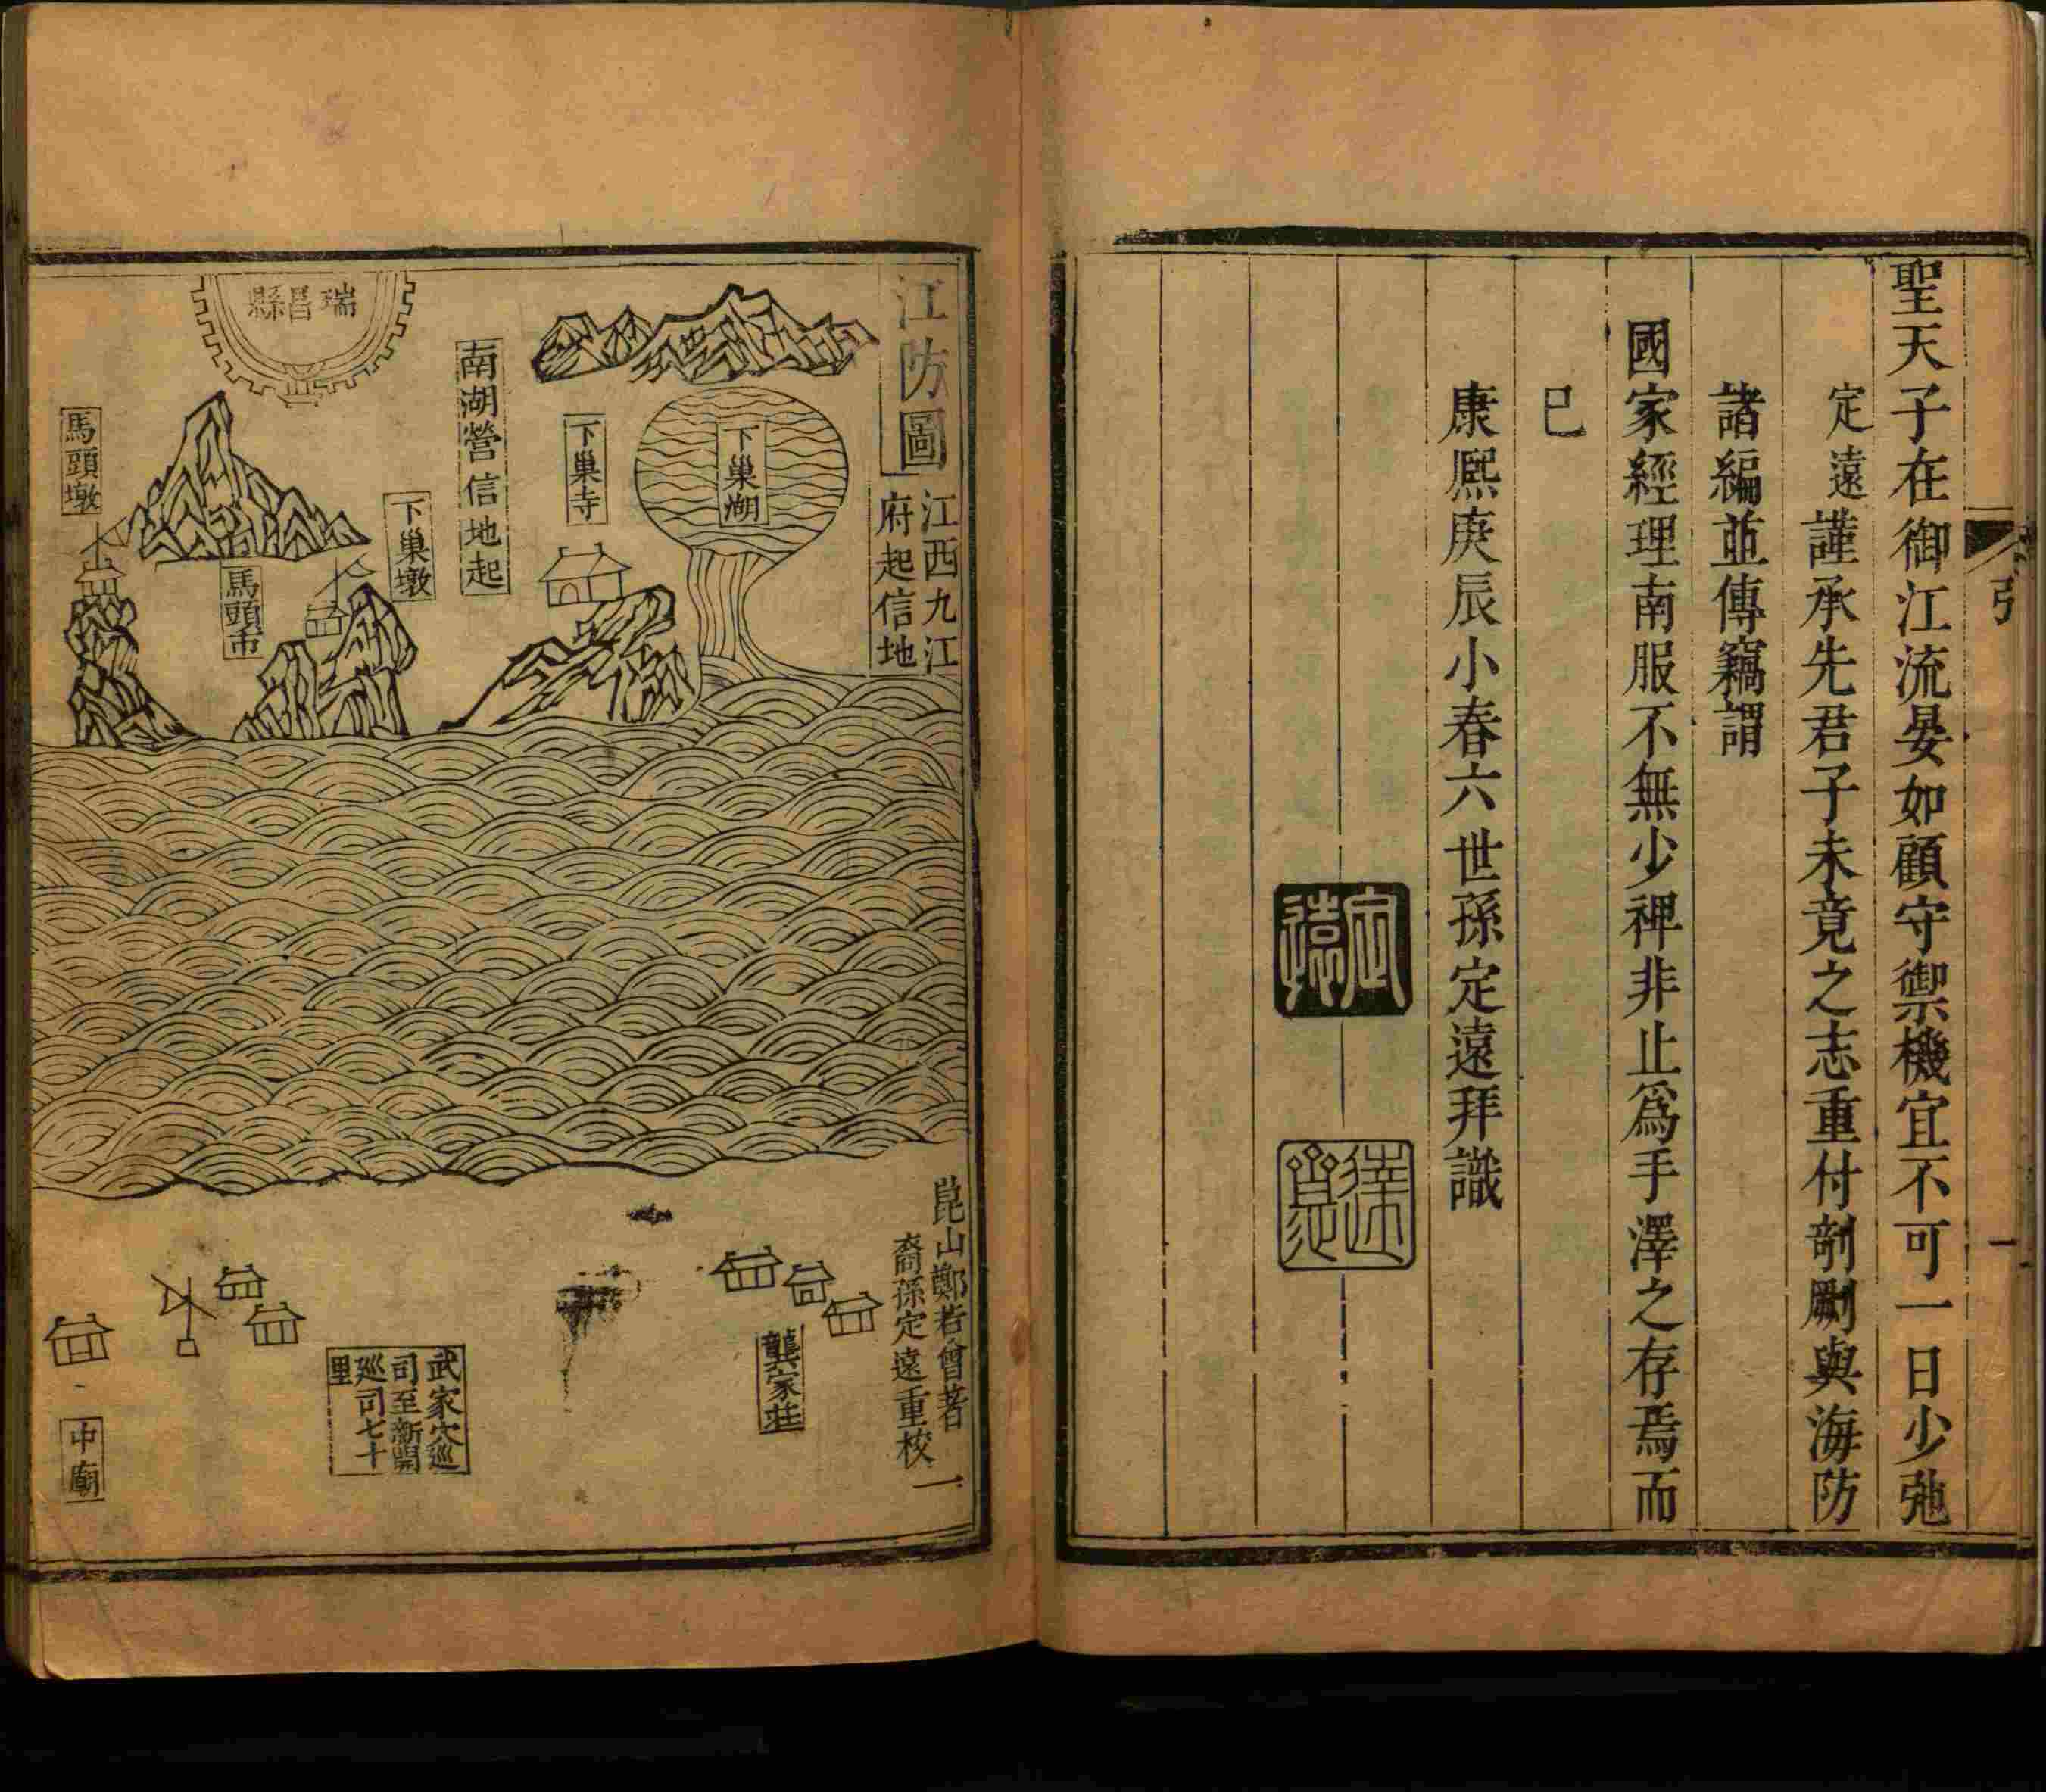 聖天子在御江流晏如顧守禦機宜不可一日少弛
定遠謹承先君子未竟之志重付剞劂與海防
諸編並傳竊謂
國家經理南服不無少裨非止爲手澤之存焉而
已
康熙庚辰小春六世孫定遠拜識
定遠
引
一
江防圖
江西九江
府起信地
崑山鄭若曾著
裔孫定遠重校
一
下巢湖
下巢寺
南湖營信地起
下巢墩
瑞昌縣
馬頭市
馬頭墩
龔家莊
武家穴巡
司至新開
巡司七十
里
中廟